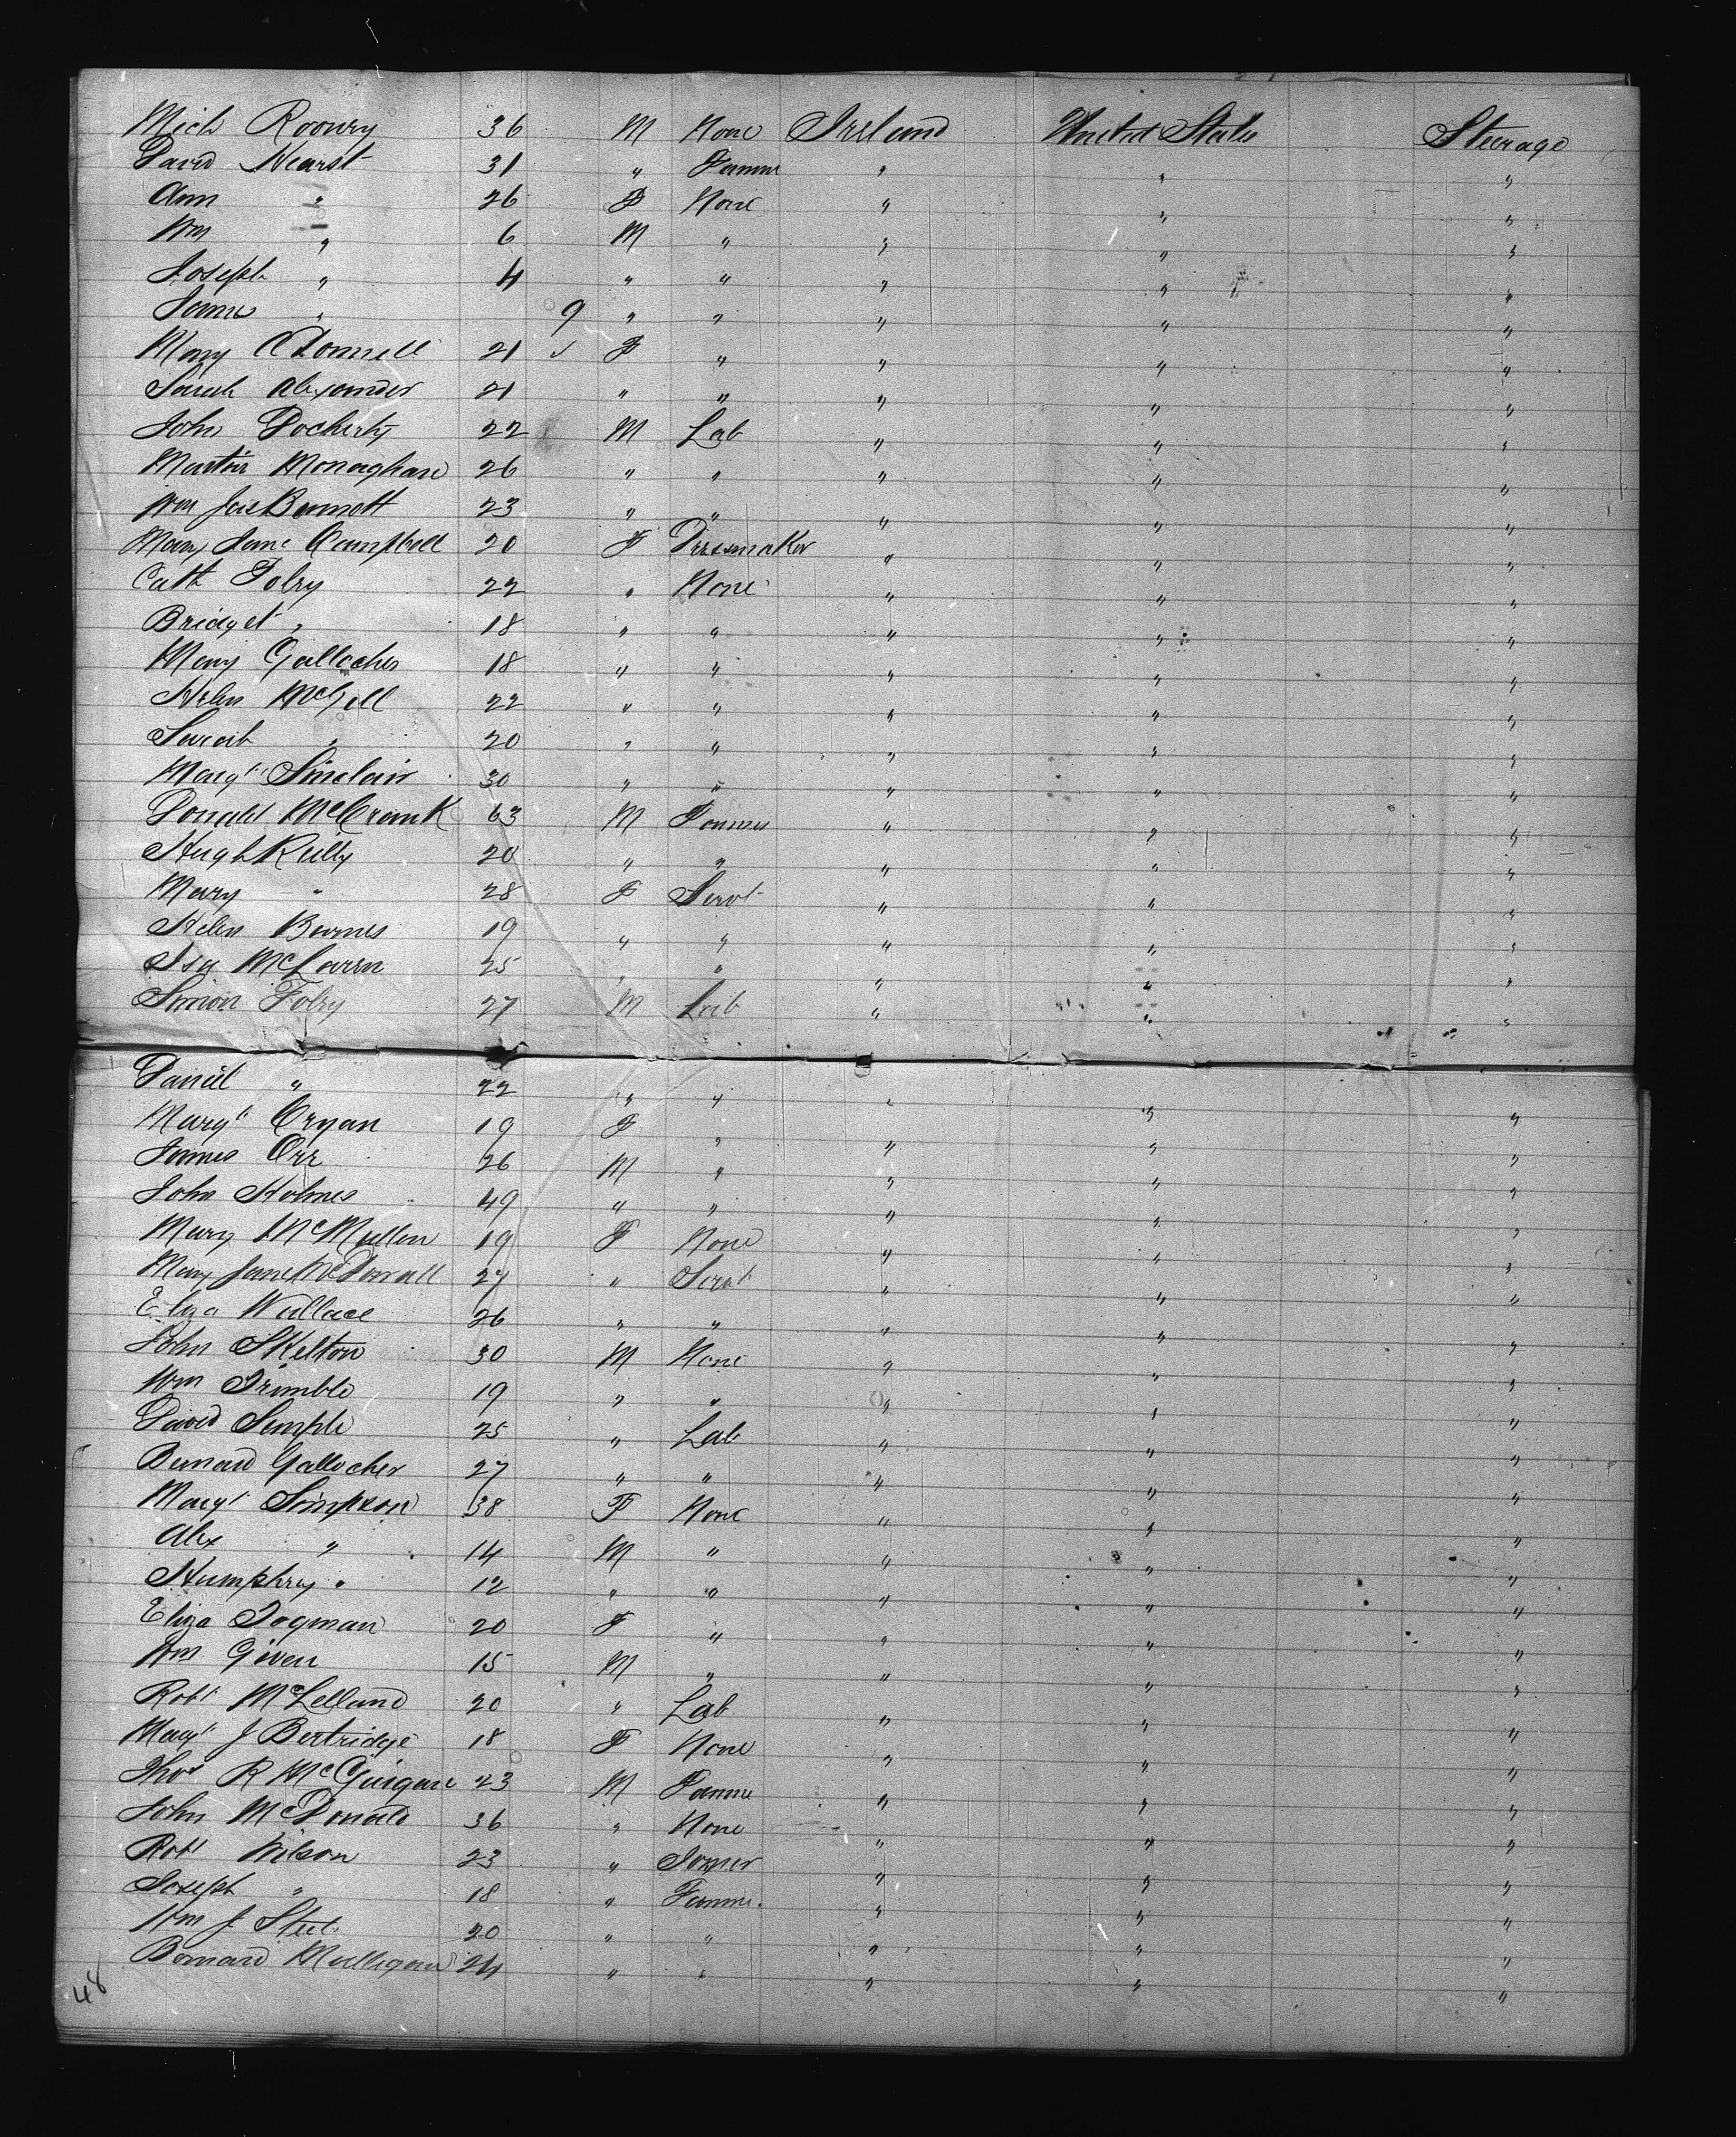 Mich Rooney 36 M None Ireland United States Steerage
David Hearst 31 " Farmer " " "
Ann " 26 F None " " "
Wm " 6 M " " " "
Joseph " 4 " " " " "
James " 9 " " " " "
Mary O'Donnell 21 F " " " "
Sarah Alexander 21 " " " " "
John Docherty 22 M Lab " " "
Martin Monaghan 26 " " " " "
Wm Jas Bennett 23 " " " " "
Mary Jane Campbell 20 F Dressmaker " " "
Cath Foley 22 " None " " "
Bridget " 18 " " " " "
Mary Gallocher 18 " " " " "
Helen McGill 22 " " " " "
Sarah " 20 " " " " "
Margt Sinclair 30 " " " " "
Donald McCrank 63 M Farmer " " "
Hugh Kielly 20 " " " " "
Mary " 28 F Servt " " "
Helen Burnes 19 " " " " "
Isa McLaren 25 " " " " "
Simon Foley 27 M Lab " " "
Daniel " 22 " " " " "
Margt Cryan 19 F " " " "
James Orr 26 M " " " "
John Holmes 49 " " " " "
Mary McMullen 19 F None " " "
Mary Jane McDowall 27 " Servt " " "
Eliza Wallace 26 " " " " "
John Skelton 30 M None " " "
Wm Trimble 19 " " " " "
David Semple 25 " Lab " " "
Bernard Gallocher 27 " " " " "
Margt Simpson 38 F None " " "
Alex " 14 M " " " "
Humphrey " 12 " " " " "
Eliza Togman 20 F " " " "
Wm Given 15 M " " " "
Robt McLelland 20 " Lab " " "
Margt J Bertridge 18 F None " " "
Thos R McGuigan 23 M Farmer " " "
John McDonald 36 " None " " "
Robt Wilson 23 " Joiner " " "
Joseph " 18 " Farmer " " "
Wm J Steel 20 " " " " "
Bernard Mulligan 24 " " " " "
48